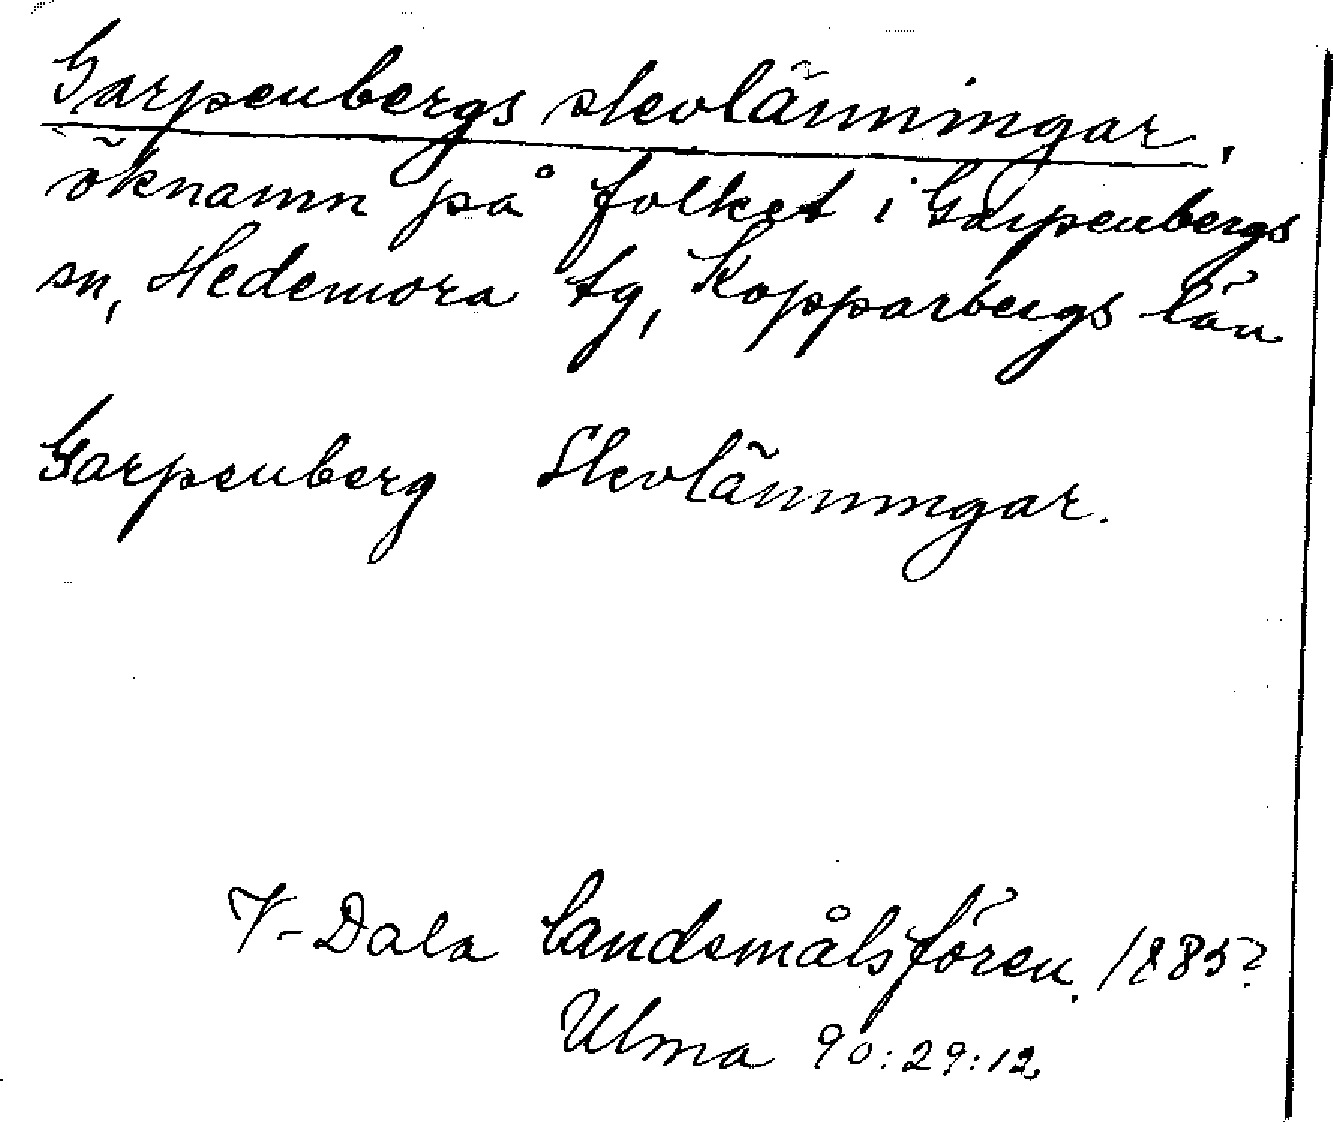 Garpenbergs skovlänningar,
öknamn på folket i Garpenbergs
sn, Hedemora tg, Kopparbergs län
Garpenberg Skovlänningar.
V-Dala landsmålsfören. 1885?
Ulma 90:29:12